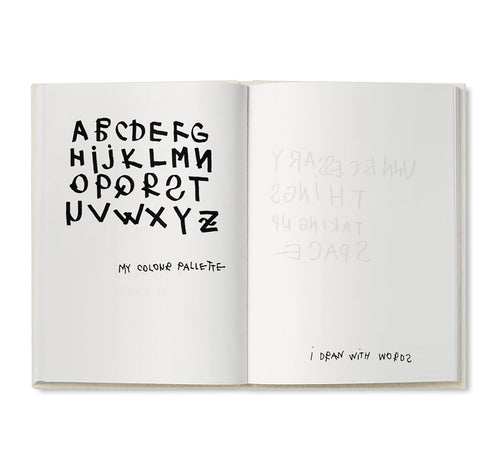 ABCDEFG
HijKLMN
OPQRST
UVWXYZ
MY COLOUR PALLETTE
UNNECESSARY
THINGS
TAKING UP
SPACE
i DRAW WITH WORDS